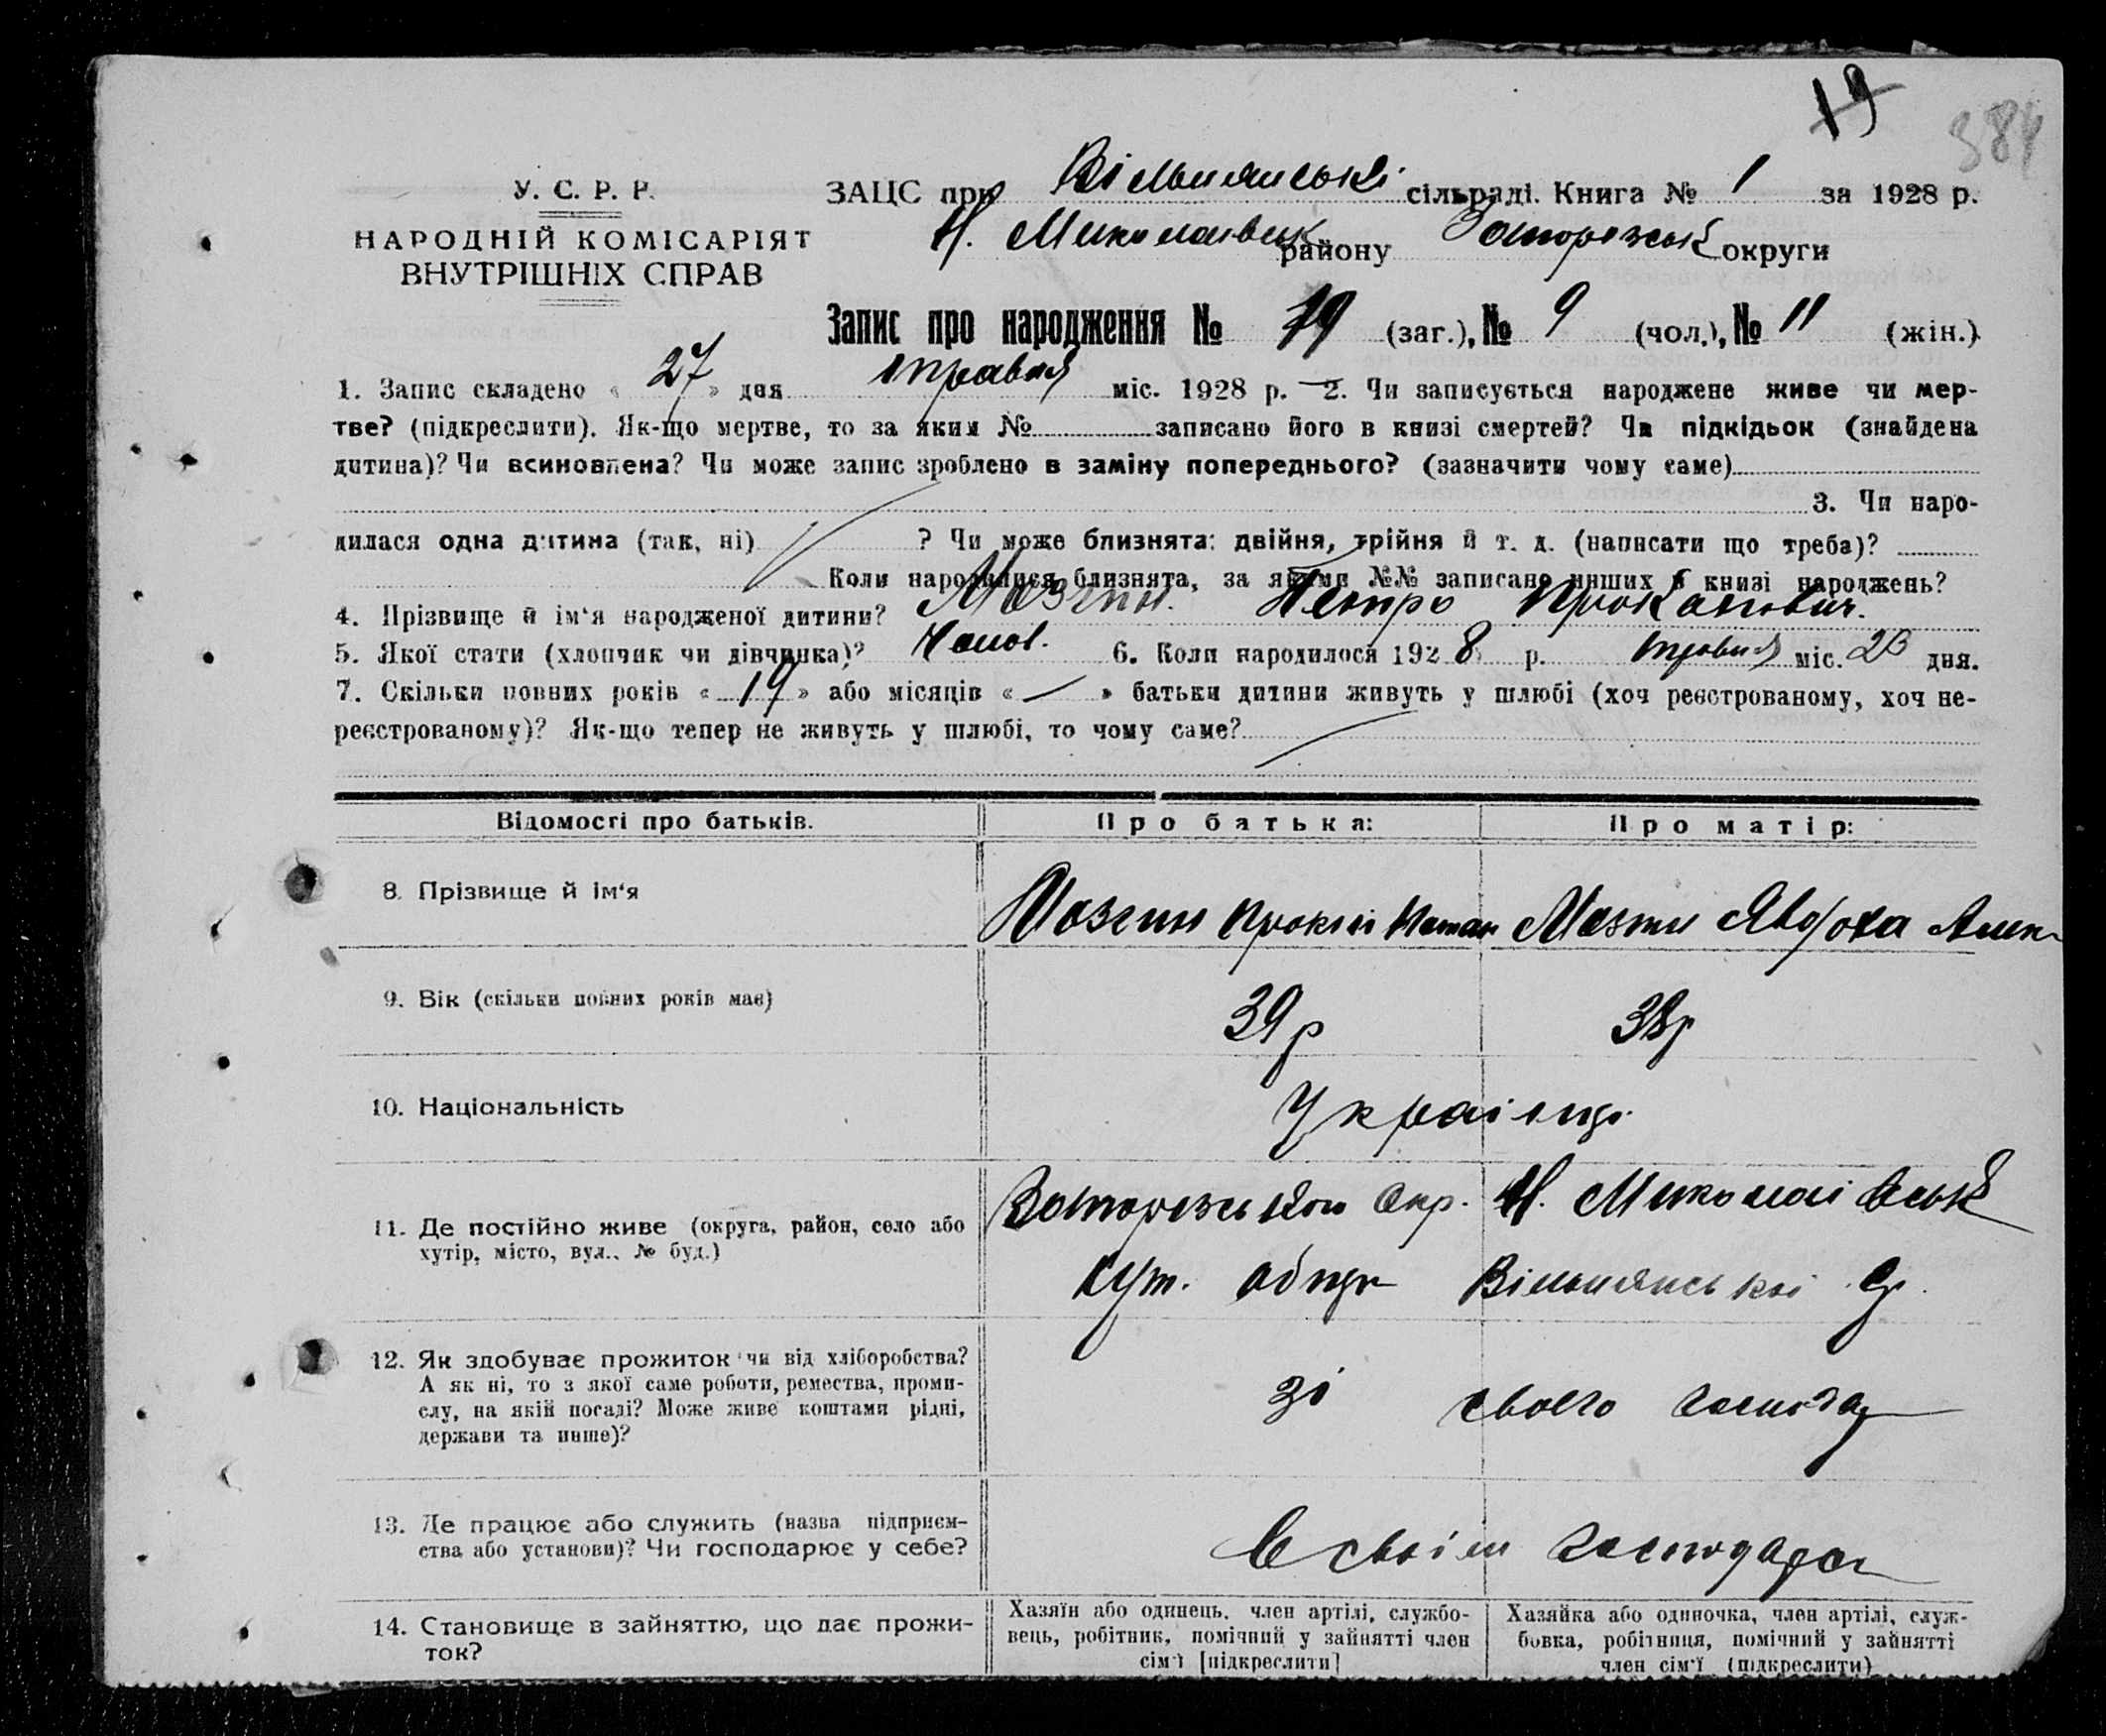 19
384
У. С. Р. Р.
НАРОДНІЙ КОМІСАРІЯТ
ВНУТРІШНІХ СПРАВ
ЗАЦС при Вільнянській сільраді. Книга № 1 за 1928 р.
Н. Миколаівськ району Запорізськ округи
Запис про народження № 19 (заг.), № 9 (чол.), № 11 (жін.)
1. Запис складено « 27 » дня травня міс. 1928 р. 2. Чи записується народжене живе чи мер-
тве? (підкреслити). Як-що мертве, то за яким № записано його в книзі смертей? Чи підкідьок (знайдена
дитина)? Чи всиновлена? Чи може запис зроблено в заміну попереднього? (зазначити чому саме)
3. Чи наро-
дилася одна дитина (так, ні) ? Чи може близнята: двійня, трійня й т. д. (написати що треба)?
Коли народилися близнята, за якими №№ записано инших в книзі народжень?
4. Прізвище й ім‘я народженої дитини? Мазгин Петро Прокапович.
5. Якої стати (хлопчик чи дівчинка)? Чолов. 6. Коли народилося 1928 р. травня міс. 23 дня.
7. Скільки повних років « 19 » або місяців « — » батьки дитини живуть у шлюбі (хоч реєстрованому, хоч не-
реєстрованому)? Як-що тепер не живуть у шлюбі, то чому саме?
Відомості про батьків. Про батька: Про матір:
8. Прізвище й ім‘я Мазгин Прокіп Мазгин Явдоха
9. Вік (скільки повних років має) 39 р 38 р
10. Національність Украінці
11. Де постійно живе (округа, район, село або Запорізської Окр. Н. Миколаівськ
хутір, місто, вул., № буд.)
хут. Вільнянської
12. Як здобуває прожиток чи від хліборобства?
А як ні, то з якої саме роботи, ремества, проми-
слу, на якій посаді? Може живе коштами рідні, зі свого господар
держави та инше)?
13. Де працює або служить (назва підприєм-
ства або установи)? Чи господарює у себе? В своім господарст
14. Становище в зайняттю, що дає прожи-
ток?
Хазяїн або одинець, член артілі, службо-
вець, робітник, помічний у зайнятті член
сім‘ї [підкреслити]
Хазяйка або одиночка, член артілі, служ-
бовка, робітниця, помічний у зайнятті
член сім‘ї (підкреслити)